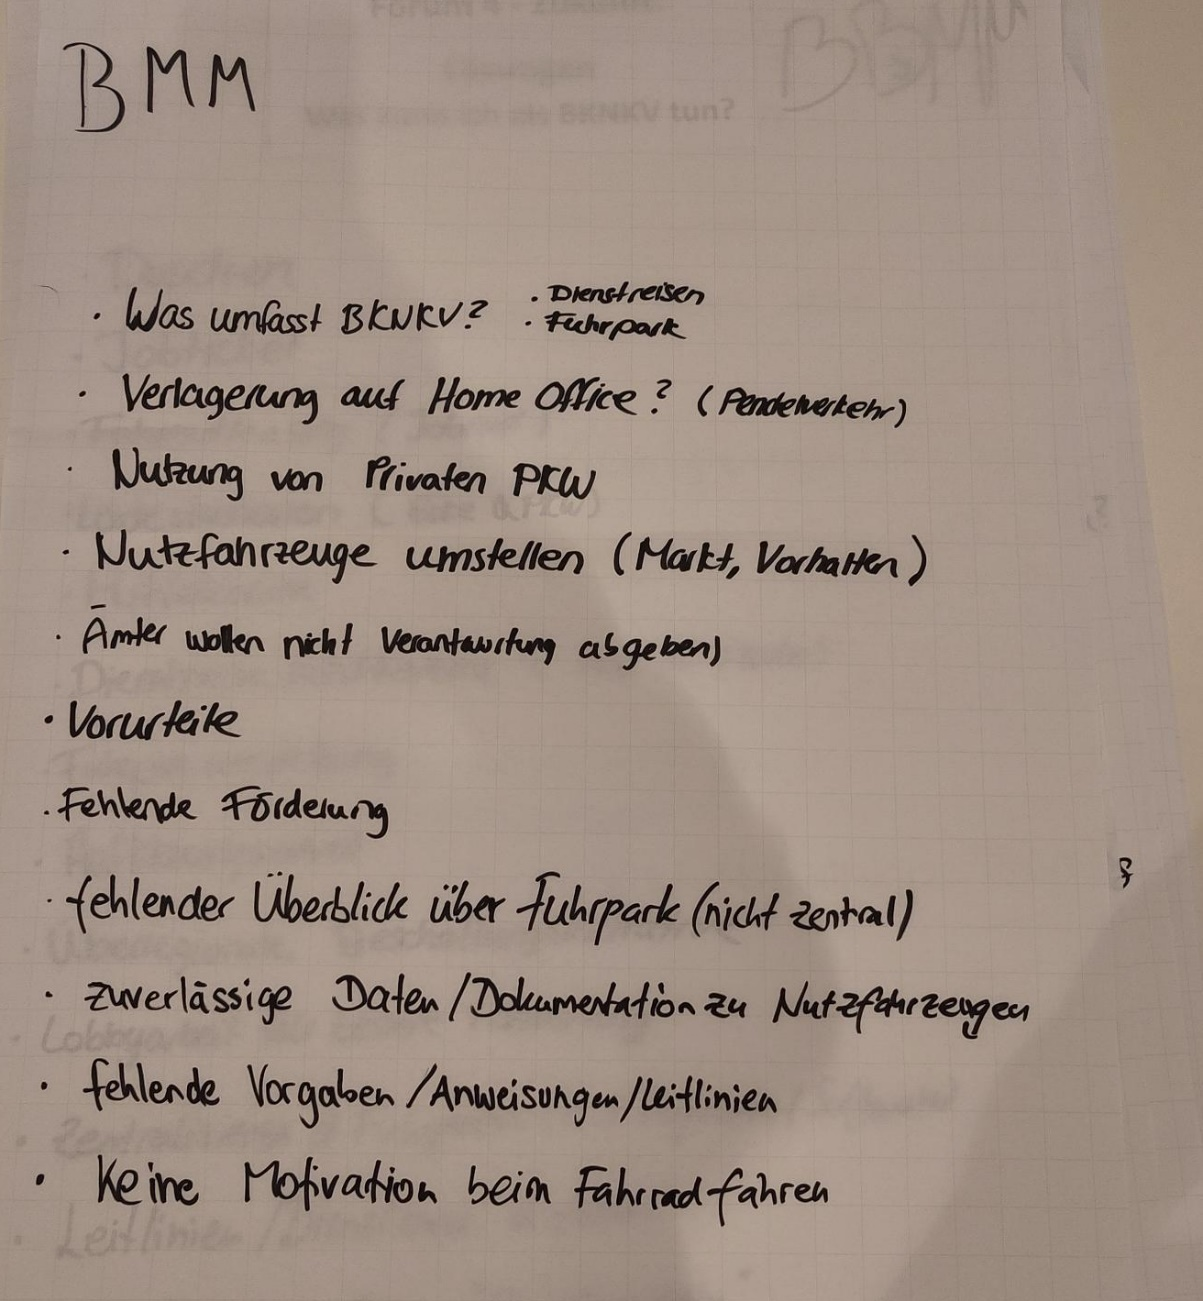 BMM
· Was umfasst BKNKV? · Dienstreisen
· Fuhrpark
· Verlagerung auf Home Office? (Pendelverkehr)
· Nutzung von Privaten PKW
· Nutzfahrzeuge umstellen (Markt, Vorhalten)
· Ämter wollen nicht Verantwortung abgeben)
· Vorurteile
· Fehlende Förderung
· fehlender Überblick über Fuhrpark (nicht zentral)
· zuverlässige Daten/Dokumentation zu Nutzfahrzeugen
· fehlende Vorgaben/Anweisungen/Leitlinien
· Keine Motivation beim Fahrradfahren